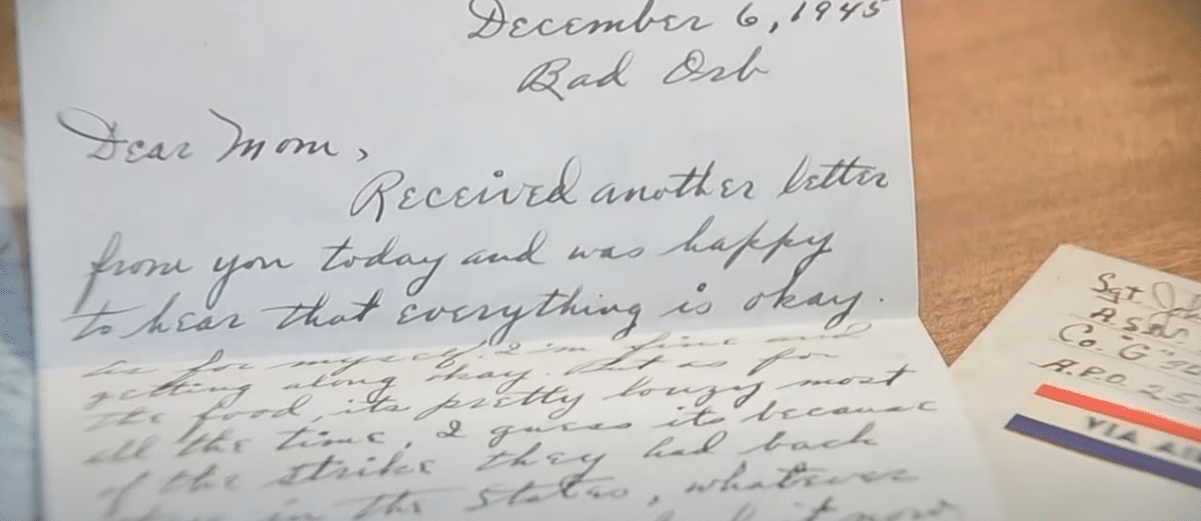 December 6, 1945
Bad Orb
Dear Mom,
Received another letter
from you today and was happy
to hear that everything is okay.
As for myself, I'm fine and
getting along okay. But as for
the food, its pretty louzy most
all the time, I guess its because
of the strike they had back
in the States, whatever
it now
Sgt
A.S.N.
Co. "G"
A.P.O. 25
VIA AI